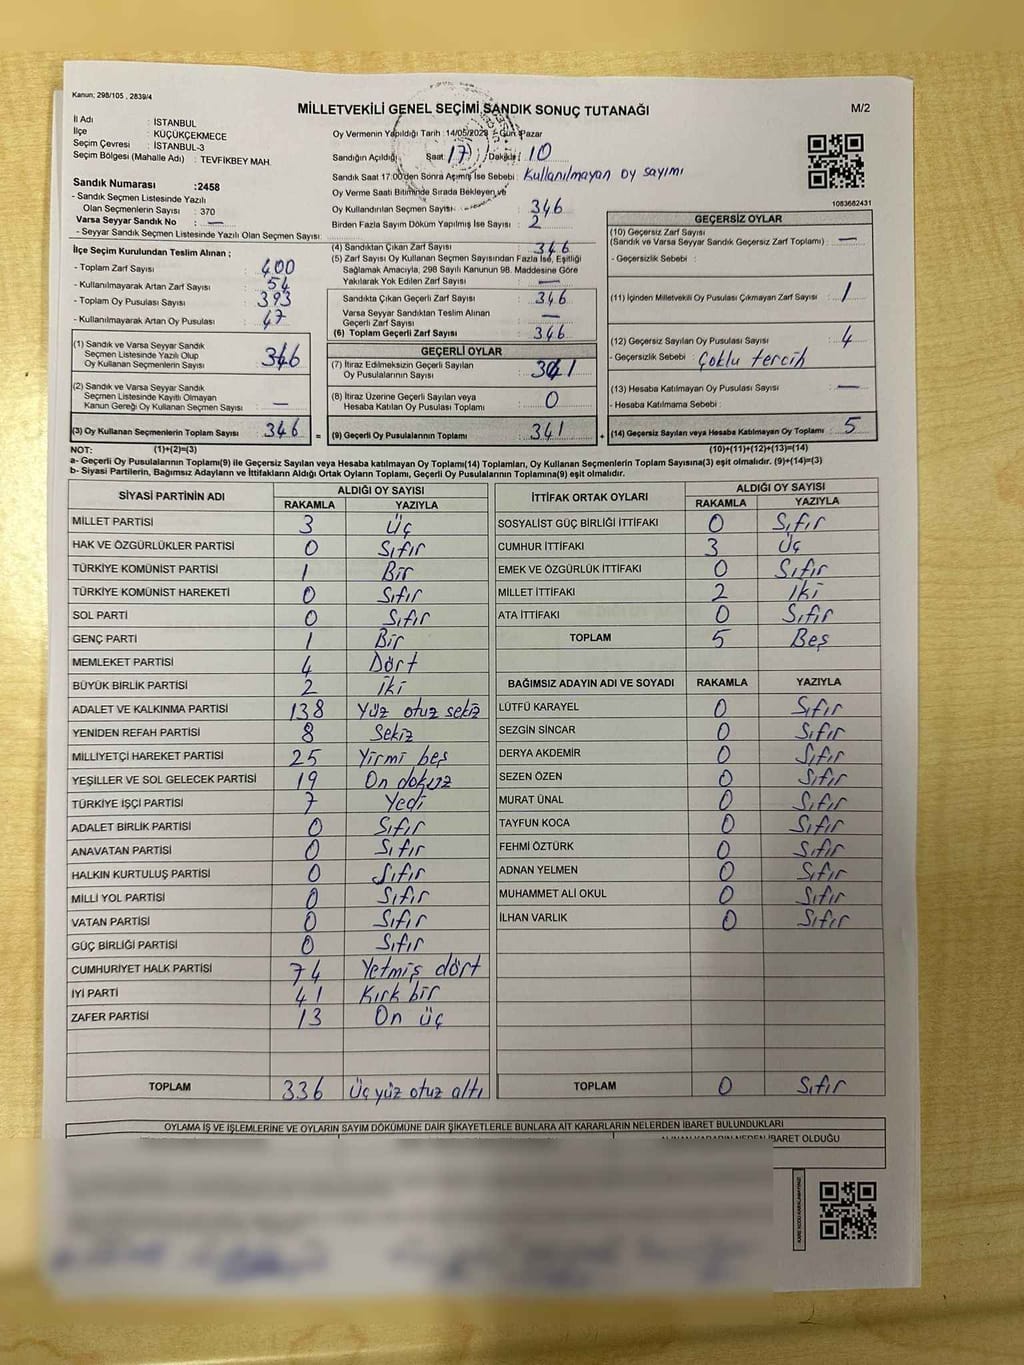 Kanun; 298/105 , 2839/4
MİLLETVEKİLİ GENEL SEÇİMİ SANDIK SONUÇ TUTANAĞI
M/2
İl Adı : İSTANBUL
İlçe : KÜÇÜKÇEKMECE
Seçim Çevresi : İSTANBUL-3
Seçim Bölgesi (Mahalle Adı) : TEVFİKBEY MAH.
Sandık Numarası :2458
- Sandık Seçmen Listesinde Yazılı
Olan Seçmenlerin Sayısı : 370
Varsa Seyyar Sandık No : —
- Seyyar Sandık Seçmen Listesinde Yazılı Olan Seçmen Sayısı:
Oy Vermenin Yapıldığı Tarih :14/05/2023 - Gün Pazar
Sandığın Açıldığı Saat: 17 Dakika: 10
Sandık Saat 17:00'den Sonra Açılmış İse Sebebi : Kullanılmayan oy sayımı
Oy Verme Saati Bitiminde Sırada Bekleyen ve
Oy Kullandırılan Seçmen Sayısı : 346
Birden Fazla Sayım Döküm Yapılmış İse Sayısı : 2
1083662431
İlçe Seçim Kurulundan Teslim Alınan ;
- Toplam Zarf Sayısı : 400
- Kullanılmayarak Artan Zarf Sayısı : 54
- Toplam Oy Pusulası Sayısı : 393
- Kullanılmayarak Artan Oy Pusulası : 47
(1) Sandık ve Varsa Seyyar Sandık
Seçmen Listesinde Yazılı Olup
Oy Kullanan Seçmenlerin Sayısı : 346
(2) Sandık ve Varsa Seyyar Sandık
Seçmen Listesinde Kayıtlı Olmayan
Kanun Gereği Oy Kullanan Seçmen Sayısı : —
(3) Oy Kullanan Seçmenlerin Toplam Sayısı : 346
(4) Sandıktan Çıkan Zarf Sayısı : 346
(5) Zarf Sayısı Oy Kullanan Seçmen Sayısından Fazla İse, Eşitliği
Sağlamak Amacıyla, 298 Sayılı Kanunun 98. Maddesine Göre
Yakılarak Yok Edilen Zarf Sayısı : —
Sandıkta Çıkan Geçerli Zarf Sayısı : 346
Varsa Seyyar Sandıktan Teslim Alınan
Geçerli Zarf Sayısı : —
(6) Toplam Geçerli Zarf Sayısı : 346
GEÇERLİ OYLAR
(7) İtiraz Edilmeksizin Geçerli Sayılan
Oy Pusulalarının Sayısı : 341
(8) İtiraz Üzerine Geçerli Sayılan veya
Hesaba Katılan Oy Pusulası Toplamı : 0
= (9) Geçerli Oy Pusulalarının Toplamı : 341
GEÇERSİZ OYLAR
(10) Geçersiz Zarf Sayısı
(Sandık ve Varsa Seyyar Sandık Geçersiz Zarf Toplamı) : —
- Geçersizlik Sebebi :
(11) İçinden Milletvekili Oy Pusulası Çıkmayan Zarf Sayısı : 1
(12) Geçersiz Sayılan Oy Pusulası Sayısı : 4
- Geçersizlik Sebebi : Çoklu tercih
(13) Hesaba Katılmayan Oy Pusulası Sayısı : —
- Hesaba Katılmama Sebebi :
+ (14) Geçersiz Sayılan veya Hesaba Katılmayan Oy Toplamı : 5
NOT: (1)+(2)=(3) (10)+(11)+(12)+(13)=(14)
a- Geçerli Oy Pusulalarının Toplamı(9) ile Geçersiz Sayılan veya Hesaba katılmayan Oy Toplamı(14) Toplamları, Oy Kullanan Seçmenlerin Toplam Sayısına(3) eşit olmalıdır. (9)+(14)=(3)
b- Siyasi Partilerin, Bağımsız Adayların ve İttifakların Aldığı Oyların Toplamı, Geçerli Oy Pusulalarının Toplamına(9) eşit olmalıdır.
SİYASİ PARTİNİN ADI ALDIĞI OY SAYISI
RAKAMLA YAZIYLA
MİLLET PARTİSİ 3 Üç
HAK VE ÖZGÜRLÜKLER PARTİSİ 0 Sıfır
TÜRKİYE KOMÜNİST PARTİSİ 1 Bir
TÜRKİYE KOMÜNİST HAREKETİ 0 Sıfır
SOL PARTİ 0 Sıfır
GENÇ PARTİ 1 Bir
MEMLEKET PARTİSİ 4 Dört
BÜYÜK BİRLİK PARTİSİ 2 İki
ADALET VE KALKINMA PARTİSİ 138 Yüz otuz sekiz
YENİDEN REFAH PARTİSİ 8 Sekiz
MİLLİYETÇİ HAREKET PARTİSİ 25 Yirmi beş
YEŞİLLER VE SOL GELECEK PARTİSİ 19 On dokuz
TÜRKİYE İŞÇİ PARTİSİ 7 Yedi
ADALET BİRLİK PARTİSİ 0 Sıfır
ANAVATAN PARTİSİ 0 Sıfır
HALKIN KURTULUŞ PARTİSİ 0 Sıfır
MİLLİ YOL PARTİSİ 0 Sıfır
VATAN PARTİSİ 0 Sıfır
GÜÇ BİRLİĞİ PARTİSİ 0 Sıfır
CUMHURİYET HALK PARTİSİ 74 Yetmiş dört
İYİ PARTİ 41 Kırk bir
ZAFER PARTİSİ 13 On üç
TOPLAM 336 Üç yüz otuz altı
İTTİFAK ORTAK OYLARI ALDIĞI OY SAYISI
RAKAMLA YAZIYLA
SOSYALİST GÜÇ BİRLİĞİ İTTİFAKI 0 Sıfır
CUMHUR İTTİFAKI 3 Üç
EMEK VE ÖZGÜRLÜK İTTİFAKI 0 Sıfır
MİLLET İTTİFAKI 2 İki
ATA İTTİFAKI 0 Sıfır
TOPLAM 5 Beş
BAĞIMSIZ ADAYIN ADI VE SOYADI RAKAMLA YAZIYLA
LÜTFÜ KARAYEL 0 Sıfır
SEZGİN SİNCAR 0 Sıfır
DERYA AKDEMİR 0 Sıfır
SEZEN ÖZEN 0 Sıfır
MURAT ÜNAL 0 Sıfır
TAYFUN KOCA 0 Sıfır
FEHMİ ÖZTÜRK 0 Sıfır
ADNAN YELMEN 0 Sıfır
MUHAMMET ALİ OKUL 0 Sıfır
İLHAN VARLIK 0 Sıfır
TOPLAM 0 Sıfır
OYLAMA İŞ VE İŞLEMLERİNE VE OYLARIN SAYIM DÖKÜMÜNE DAİR ŞİKAYETLERLE BUNLARA AİT KARARLARIN NELERDEN İBARET BULUNDUKLARI
ALINAN KARARIN NEDEN İBARET OLDUĞU